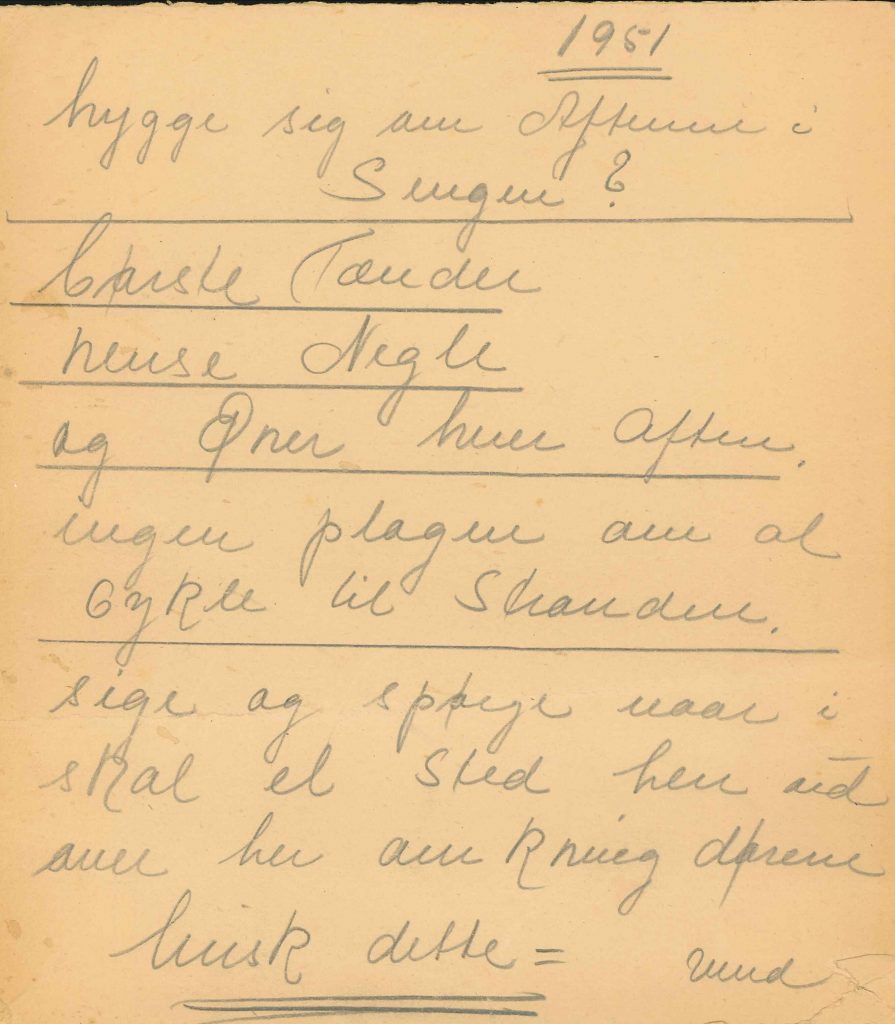 1951
hygge sig om Aftenen i
Sengen?
børste Tænder
rense Negle
og Ører hver Aften.
ingen plagen om at
cykle til Stranden.
sige og spørge naar i
skal et Sted hen ud
over her omkring dørene
husk dette =